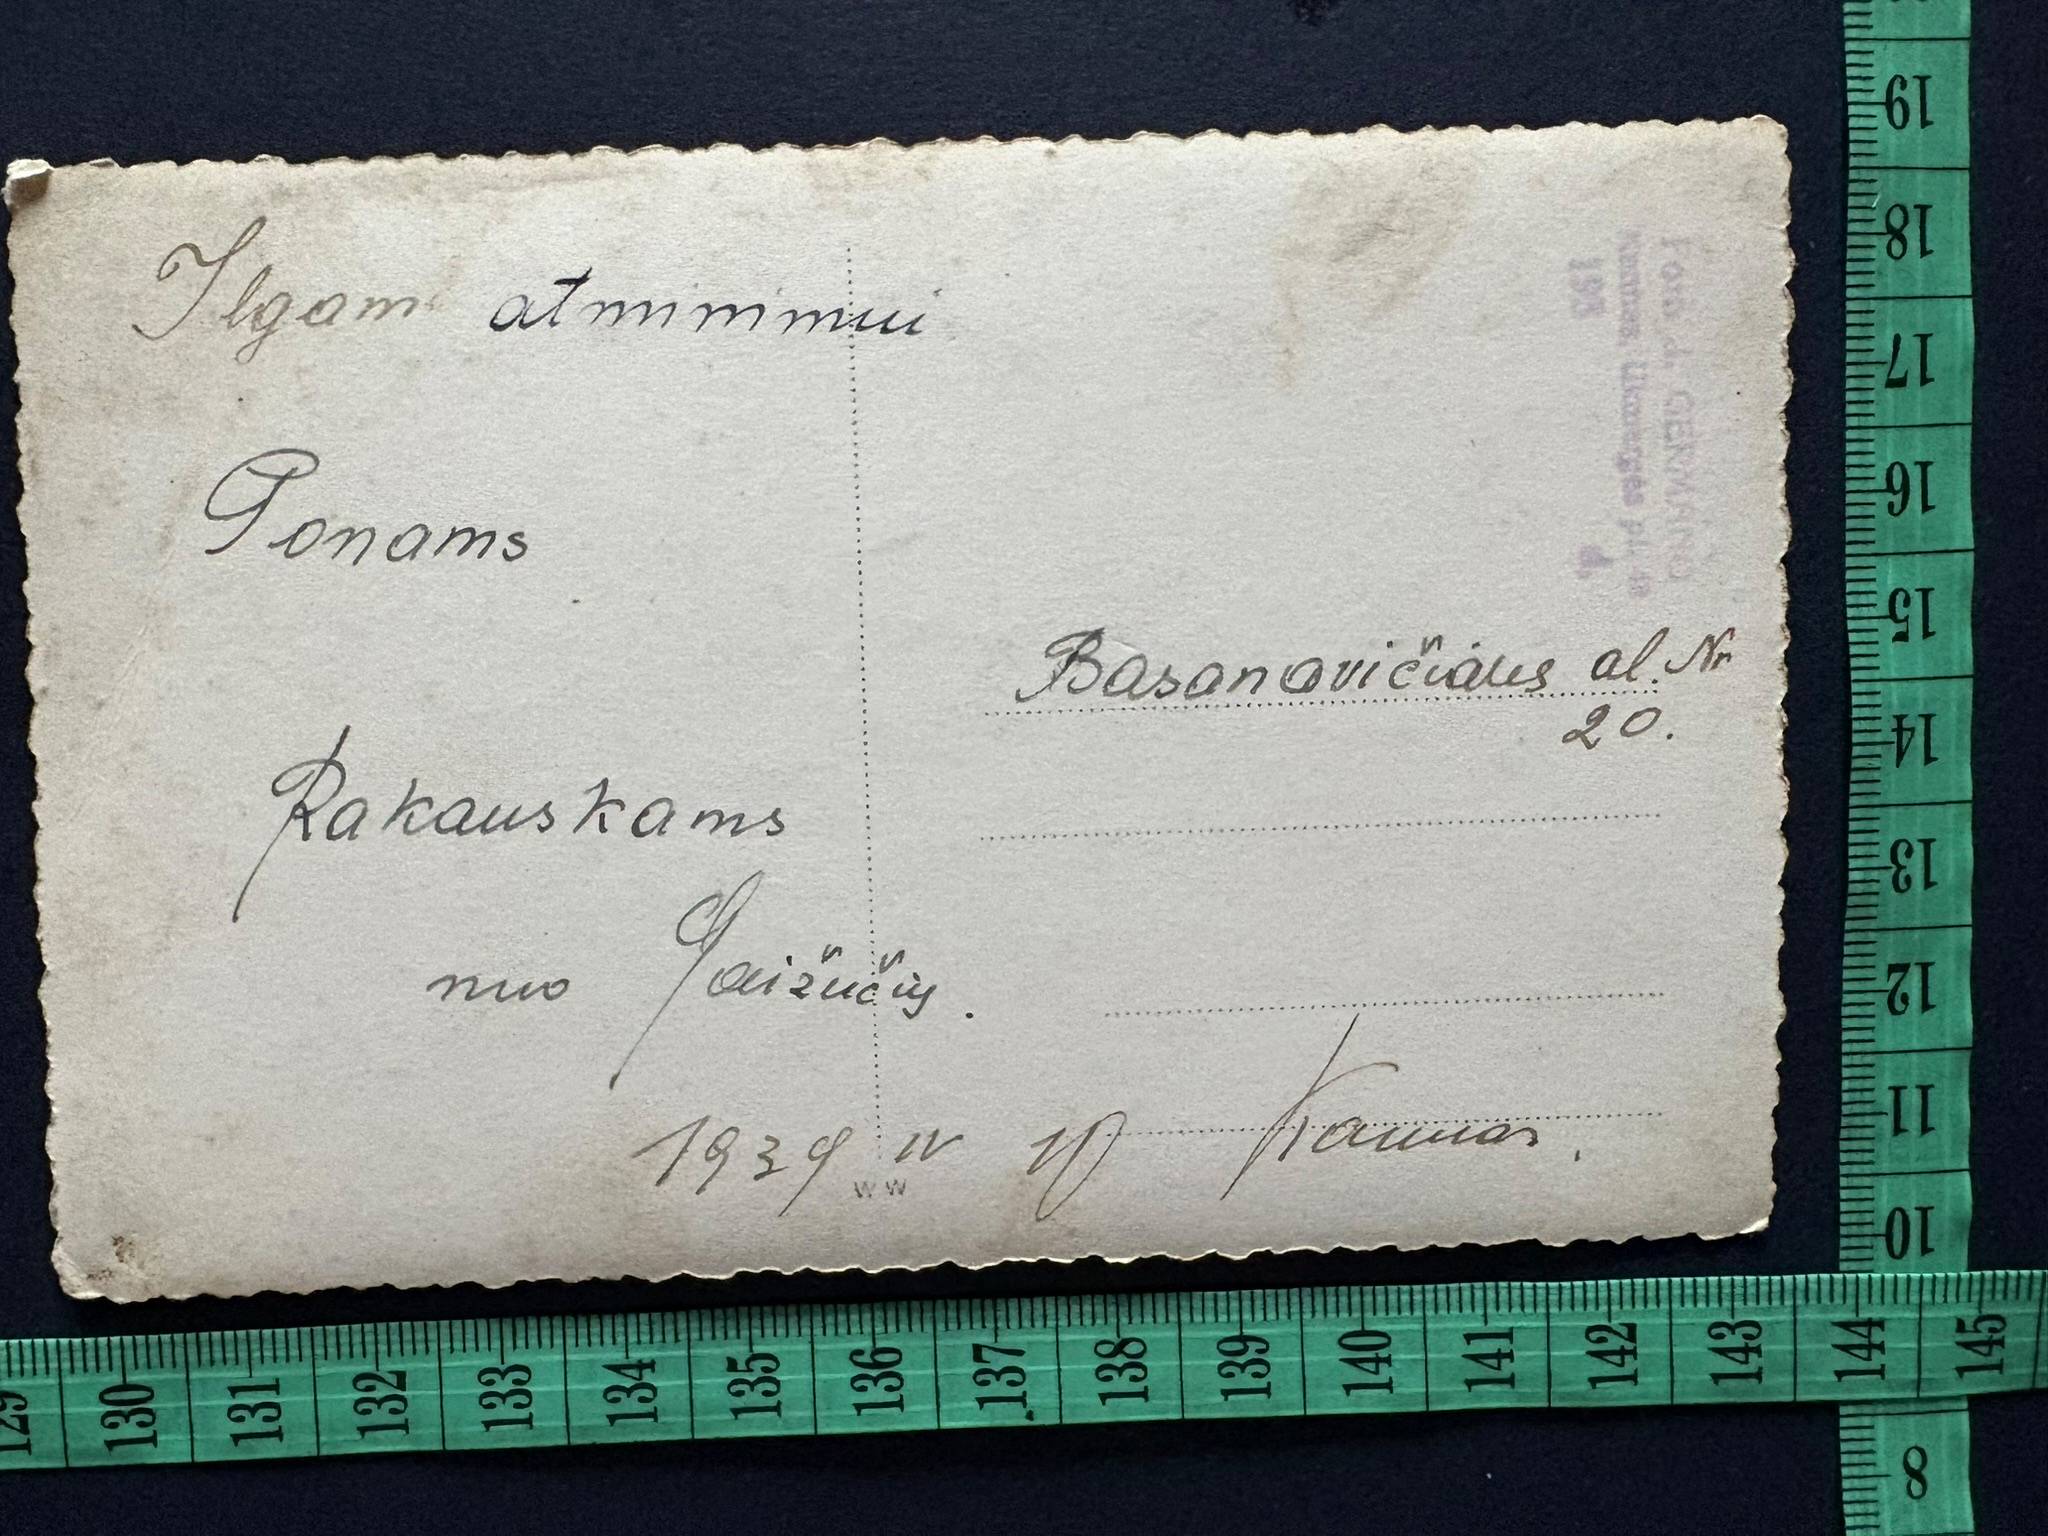 Ilgam atminimui
Ponams
Rakauskams
nuo Gaižučių.
1939 IV 10 Kaunas.
Basanavičiaus al. Nr
20.
WW
GERMANO
Ukmergės
195
19
18
17
16
15
14
13
12
11
10
8
129 130 131 132 133 134 135 136 137 138 139 140 141 142 143 144 145